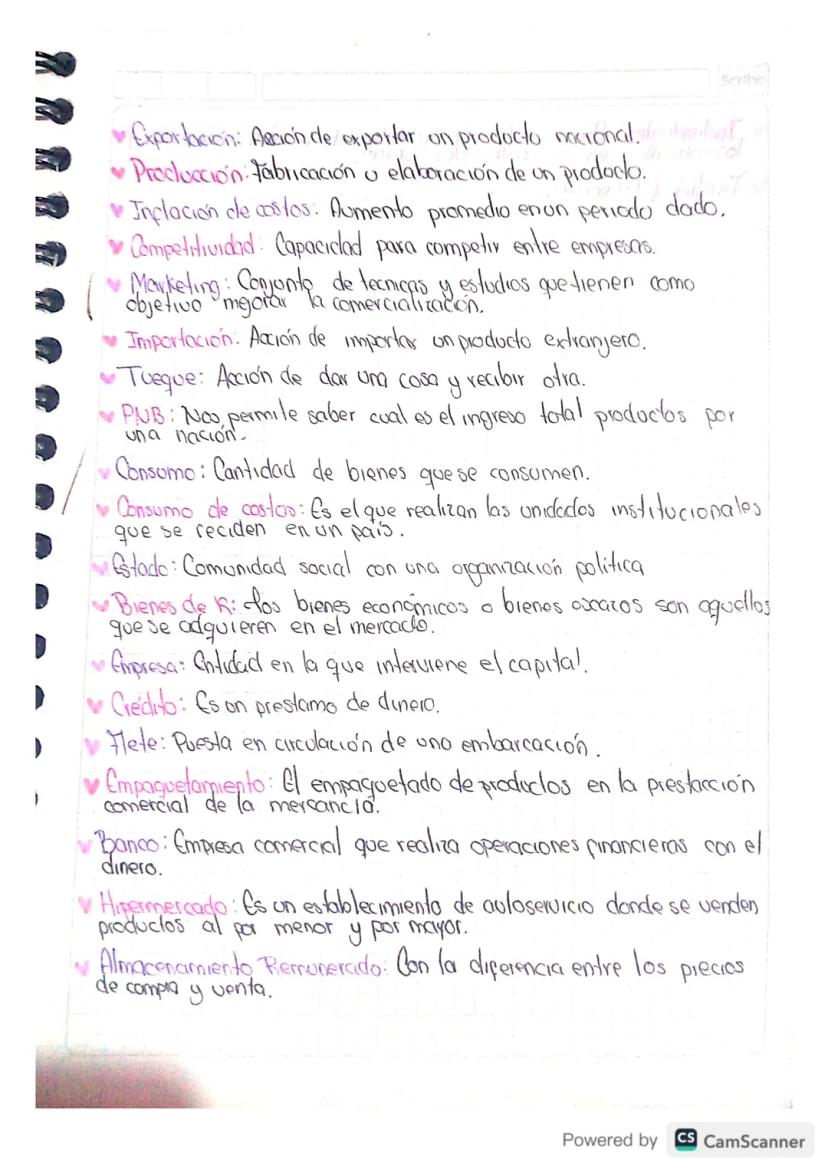 Scribe
♥ Exportación: Acción de exportar un producto nacional.
♥ Producción: Fabricación o elaboración de un producto.
♥ Inflación de costos: Aumento promedio en un periodo dado.
♥ Competitividad: Capacidad para competir entre empresas.
♥ Marketing: Conjunto de tecnicas y estudios que tienen como
objetivo mejorar la comercialización.
♥ Importación: Acción de importar un producto extranjero.
♥ Tueque: Acción de dar una cosa y recibir otra.
♥ PNB: Nos permite saber cual es el ingreso total productos por
una nación.
♥ Consumo: Cantidad de bienes que se consumen.
♥ Consumo de costos: Es el que realizan las unidades institucionales
que se reciden en un país.
♥ Estado: Comunidad social con una organización política
♥ Bienes de K: Los bienes económicos o bienes escaros son aquellos
que se adquieren en el mercado.
♥ Empresa: Entidad en la que interviene el capital.
♥ Crédito: Es un prestamo de dinero.
♥ Flete: Puesta en circulación de una embarcación.
♥ Empaquetamiento: El empaquetado de productos en la prestacción
comercial de la mercancía.
♥ Banco: Empresa comercial que realiza operaciones financieras con el
dinero.
♥ Hipermercado: Es un establecimiento de autoservicio donde se venden
productos al por menor y por mayor.
♥ Almacenamiento Remunerado: Con la diferencia entre los precios
de compra y venta.
Powered by CS CamScanner